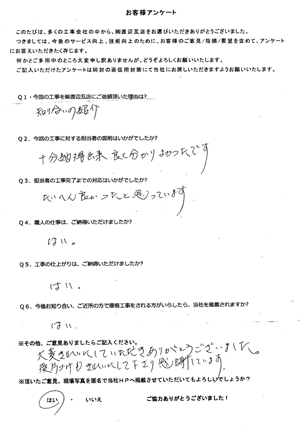 お客様アンケート
このたびは、多くの工事会社の中から、㈱渡辺瓦店をお選びいただきありがとうございました。
つきましては、今後のサービス向上、技術向上のために、お客様のご意見/指摘/要望を含めて、アンケート
にお答えいただきたく存じます。
何かとご多用中のところ大変申し訳ありませんが、どうぞよろしくお願いいたします。
ご記入いただけたアンケートは同封の返信用封筒にて当社にお戻しいただきますようお願いいたします。
Q1・今回の工事を㈱渡辺瓦店にご依頼頂いた理由は?
知り合いの紹介
Q2、今回の工事に対する担当者の説明はいかがでしたか?
十分納得出来 良く分かりよかったです
Q3、担当者の工事完了までの対応はいかがでしたか?
たいへん良かったと思っています
Q4、職人の仕事は、ご納得いただけましたか?
はい。
Q5、工事の仕上がりは、ご納得いただけましたか?
はい.
Q6、今後お知り合い、ご近所の方で屋根工事をされる方がいらしたら、当社を推薦されますか?
はい.
※その他、ご意見ありましたらご記入ください。
大変きれいにしていただきありがとうございました。
後片付けもきれいにして下さり感謝しています。
※頂いたご意見、現場写真を匿名で当社HPへ掲載させていただいてもよろしいでしょうか?
はい ・ いいえ ご協力ありがとうございました!